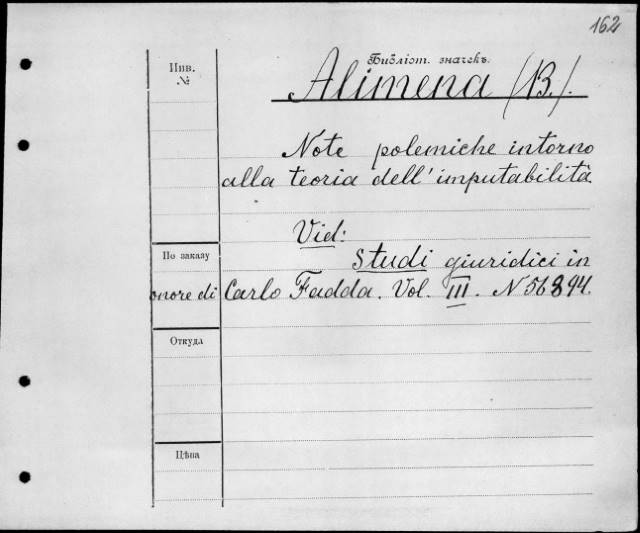 162
Библіот. значекъ.
Инв.
№
Alimena (B.).
Note polemiche intorno
alla teoria dell'imputabilità.
Vid:
Studi giuridici in
По заказу
onore di Carlo Fadda. Vol. III. N 56894.
Откуда
Цѣна